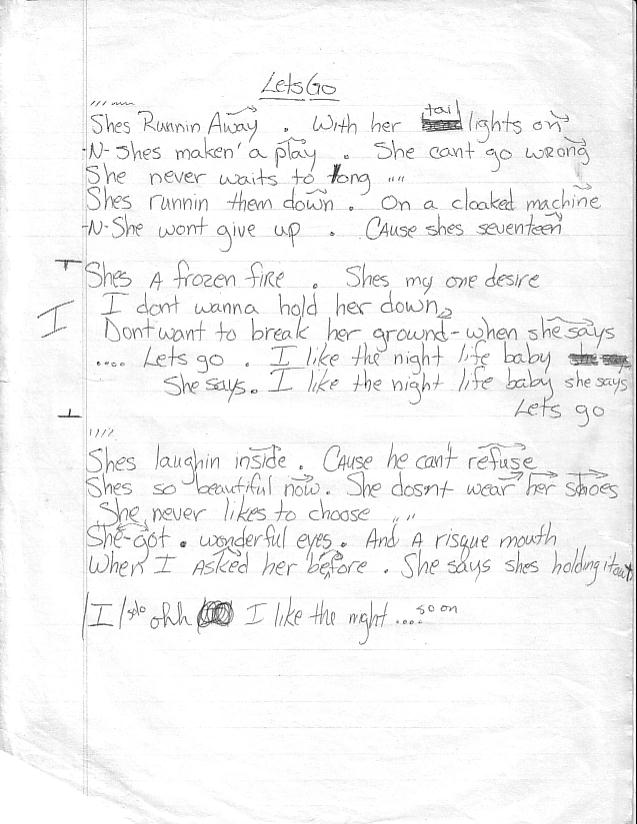 Lets Go
Shes Runnin Away . With her tail lights on
-N- shes maken' a play . She cant go wrong
She never waits to long " "
Shes runnin them down . On a cloaked machine
-N- She wont give up . CAuse shes seventeen
Shes A frozen fire . Shes my one desire
I dont wanna hold her down
I
Dont want to break her ground - when she says
.... Lets go . I like the night life baby
She says. I like the night life baby she says
Lets go
Shes laughin inside . CAuse he can't refuse
Shes so beautiful now. She dosnt wear her shoes
She never likes to choose " "
She-Got . wonderful eyes . And A risque mouth
When I Asked her before . She says shes holding it out
I / solo ohh I like the night .... so on